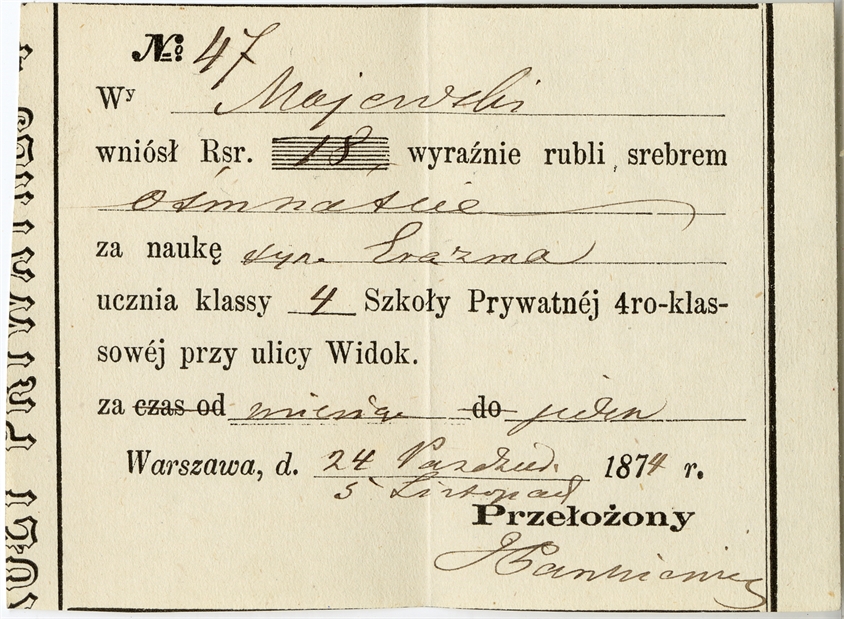 № 47
Wy Majewski
wniósł Rsr. 18, wyraźnie rubli srebrem
ośmnaście
za naukę syna Erazma
ucznia klassy 4 Szkoły Prywatnéj 4ro-klas-
sowéj przy ulicy Widok.
za czas od miesiąc do jeden
Warszawa, d. 24 Paździer. 1874 r.
5 Listopad
Przełożony